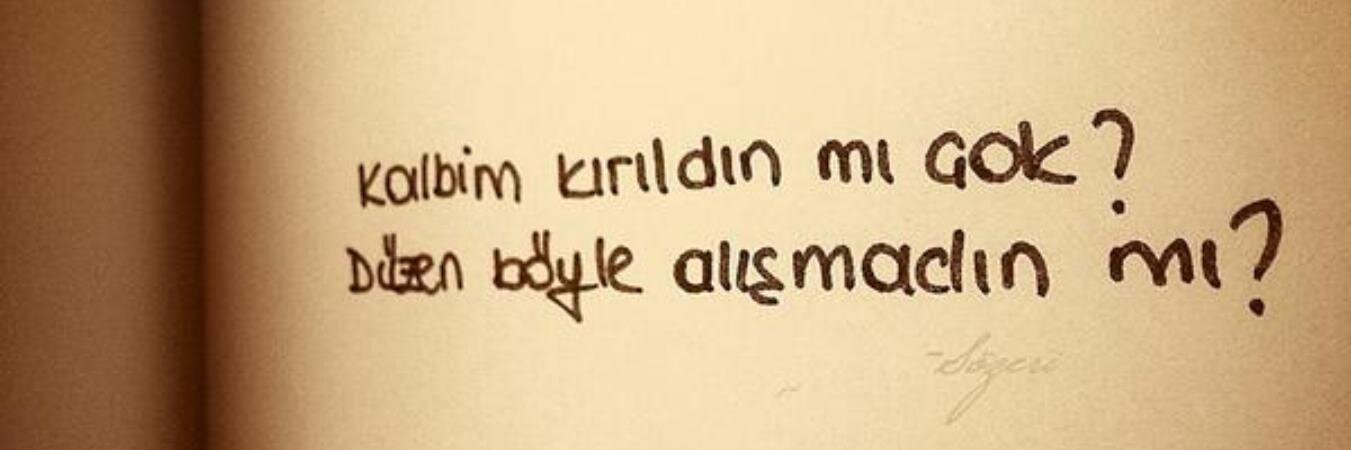 Kalbim kırıldın mı Gok?
Düzen böyle alışmadın mı?
-Sözeri